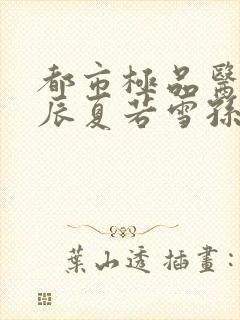 都市極品醫
辰夏若雪孫
葉山透 插畫：